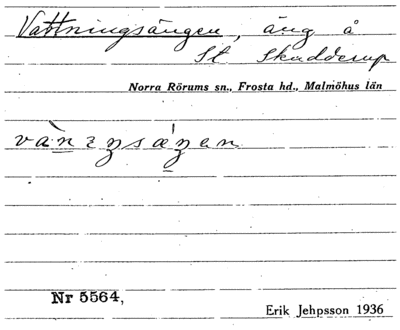 Vattningsängen, äng å
St Skadderup
Norra Rörums sn., Frosta hd., Malmöhus län
Nr 5564,
Erik Jehpsson 1936